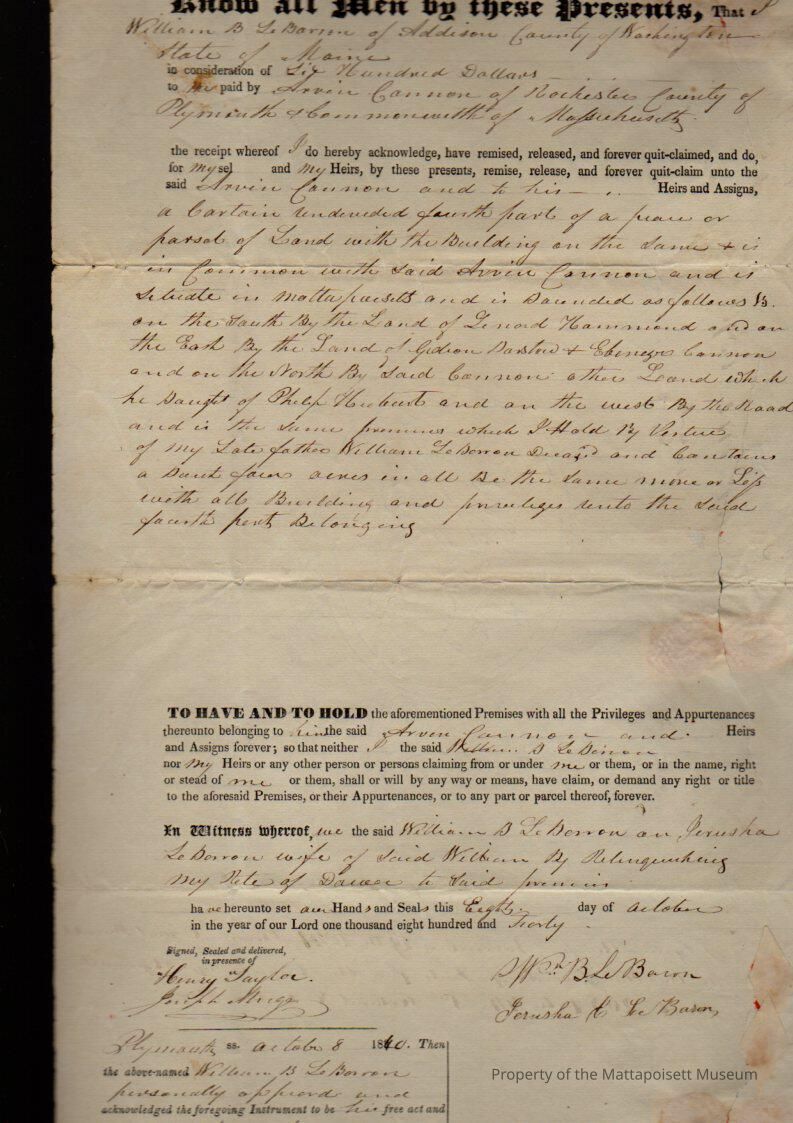 Know all Men by these Presents, That I
William B LeBarron of Addison County of Washington
State of Maine
in consideration of Six Hundred Dollars
to me paid by Arvin Cannon of Rochester County of
Plymouth & Commonwelth of Massachusetts
the receipt whereof I do hereby acknowledge, have remised, released, and forever quit-claimed, and do,
for mysel and my Heirs, by these presents, remise, release, and forever quit-claim unto the
said Arvin Cannon and to his Heirs and Assigns,
a Certain undevided fourth part of a peace or
parsal of Land with the Building on the Same & is
in Common with Said Arvin Cannon and is
Situate in Mattapoisett and is bounded as follows
on the South By the Land of Hammond and on
the East By the Land of Gideon Barstow & Ebenezer Cannon
and on the North By Said Cannon other Land which
he baught of Philip and on the west By the Road
and is the Same premises which I Hold By Vertue
of my Late father William LeBarron and Contains
a bout four acres in all Be the Same more or Less
with all Building and privileges unto the Said
fourth part Belonging
TO HAVE AND TO HOLD the aforementioned Premises with all the Privileges and Appurtenances
thereunto belonging to him the said Arvin Cannon and Heirs
and Assigns forever; so that neither I the said William B LeBarron
nor my Heirs or any other person or persons claiming from or under me or them, or in the name, right
or stead of me or them, shall or will by any way or means, have claim, or demand any right or title
to the aforesaid Premises, or their Appurtenances, or to any part or parcel thereof, forever.
In Witness whereof, we the said William B LeBorron an Jerusha
LeBorron wife of Said William By Relinquishing
my Rite of Dower to Said premises
have hereunto set our Hands and Seals this Eight day of October
in the year of our Lord one thousand eight hundred and Forty
Signed, Sealed and delivered,
in presence of
Henry Taylor.
Joseph Meigs
Wm. B. LeBaron
Jerusha C LeBaron
Plymouth ss. October 8 1840. Then
the above-named William B LeBorron
personally appeard and
acknowledged the foregoing Instrument to be his free act and
Property of the Mattapoisett Museum